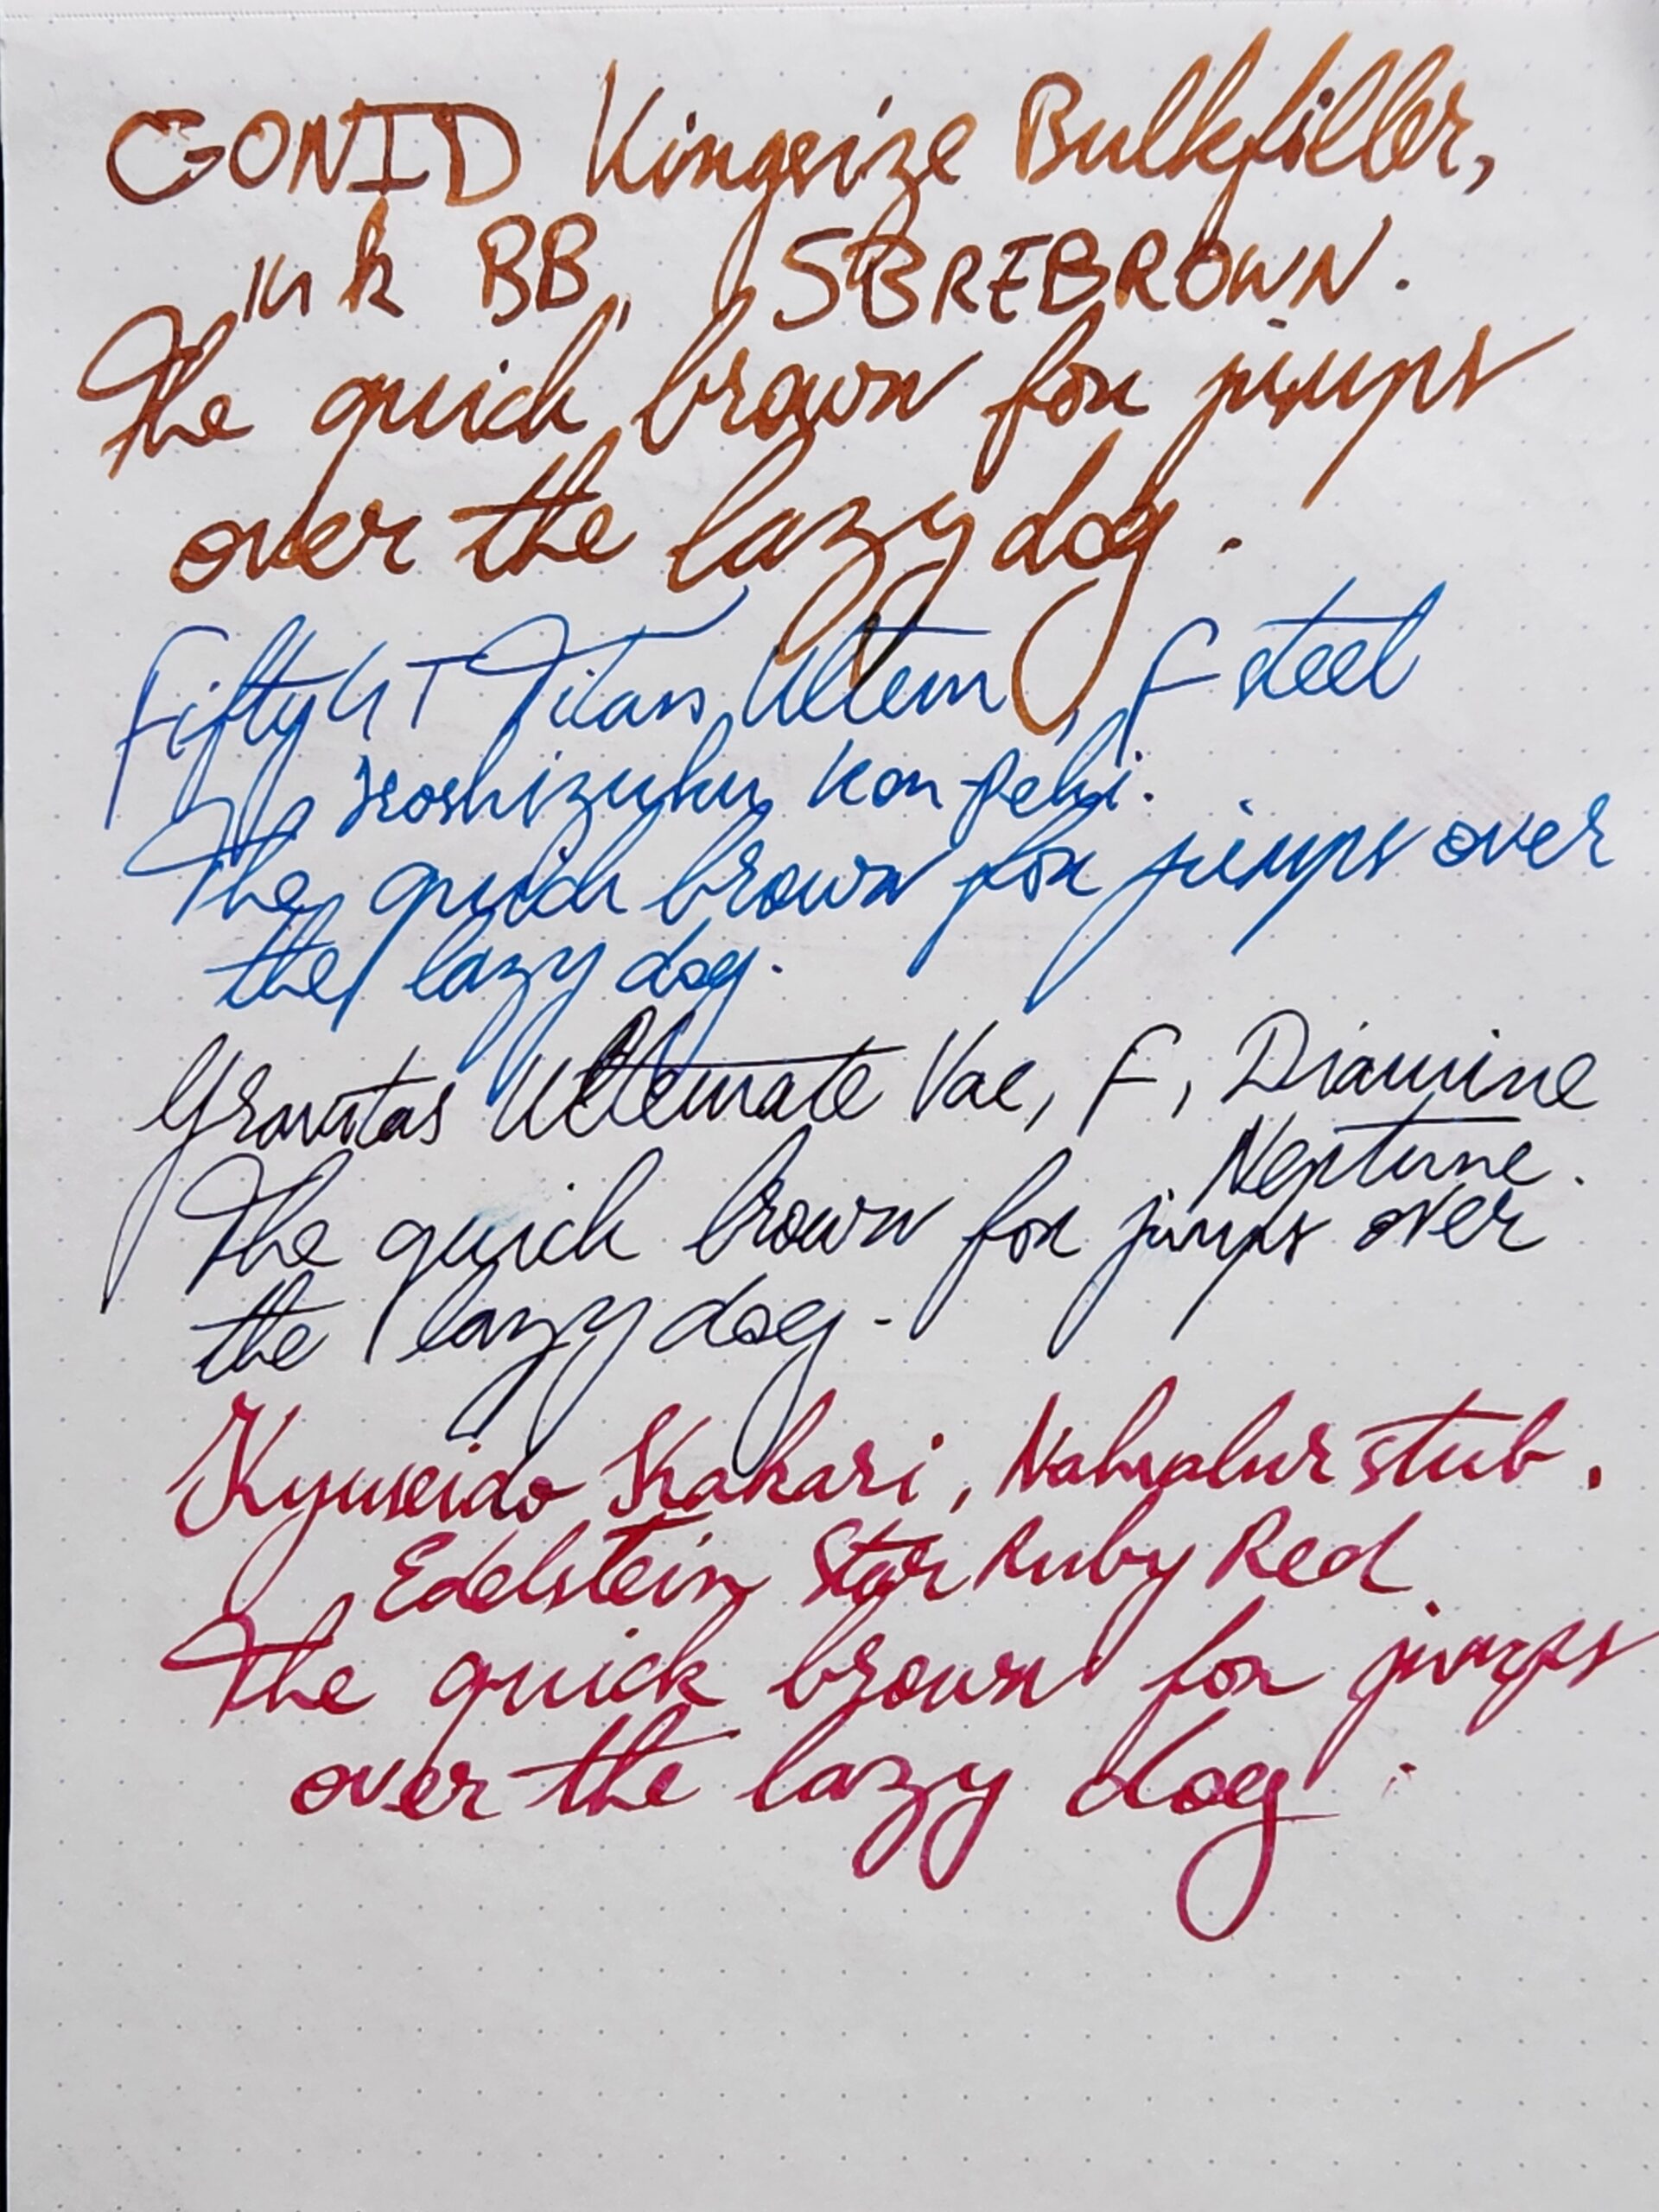 CONID Kingsize Bulkfiller,
14 k BB, SBREBROWN.
The quick brown fox jumps
over the lazy dog.
Fifty4T Titan Ultem, F steel
Iroshizuku Kon Peki.
The quick brown fox jumps over
the lazy dog.
Gravitas Ultemate Vac, F, Diamine
Neptune.
The quick brown fox jumps over
the lazy dog.
Kyuseido Kakari, Nahvalur stub.
Edelstein Star Ruby Red
The quick brown fox jumps
over the lazy dog.